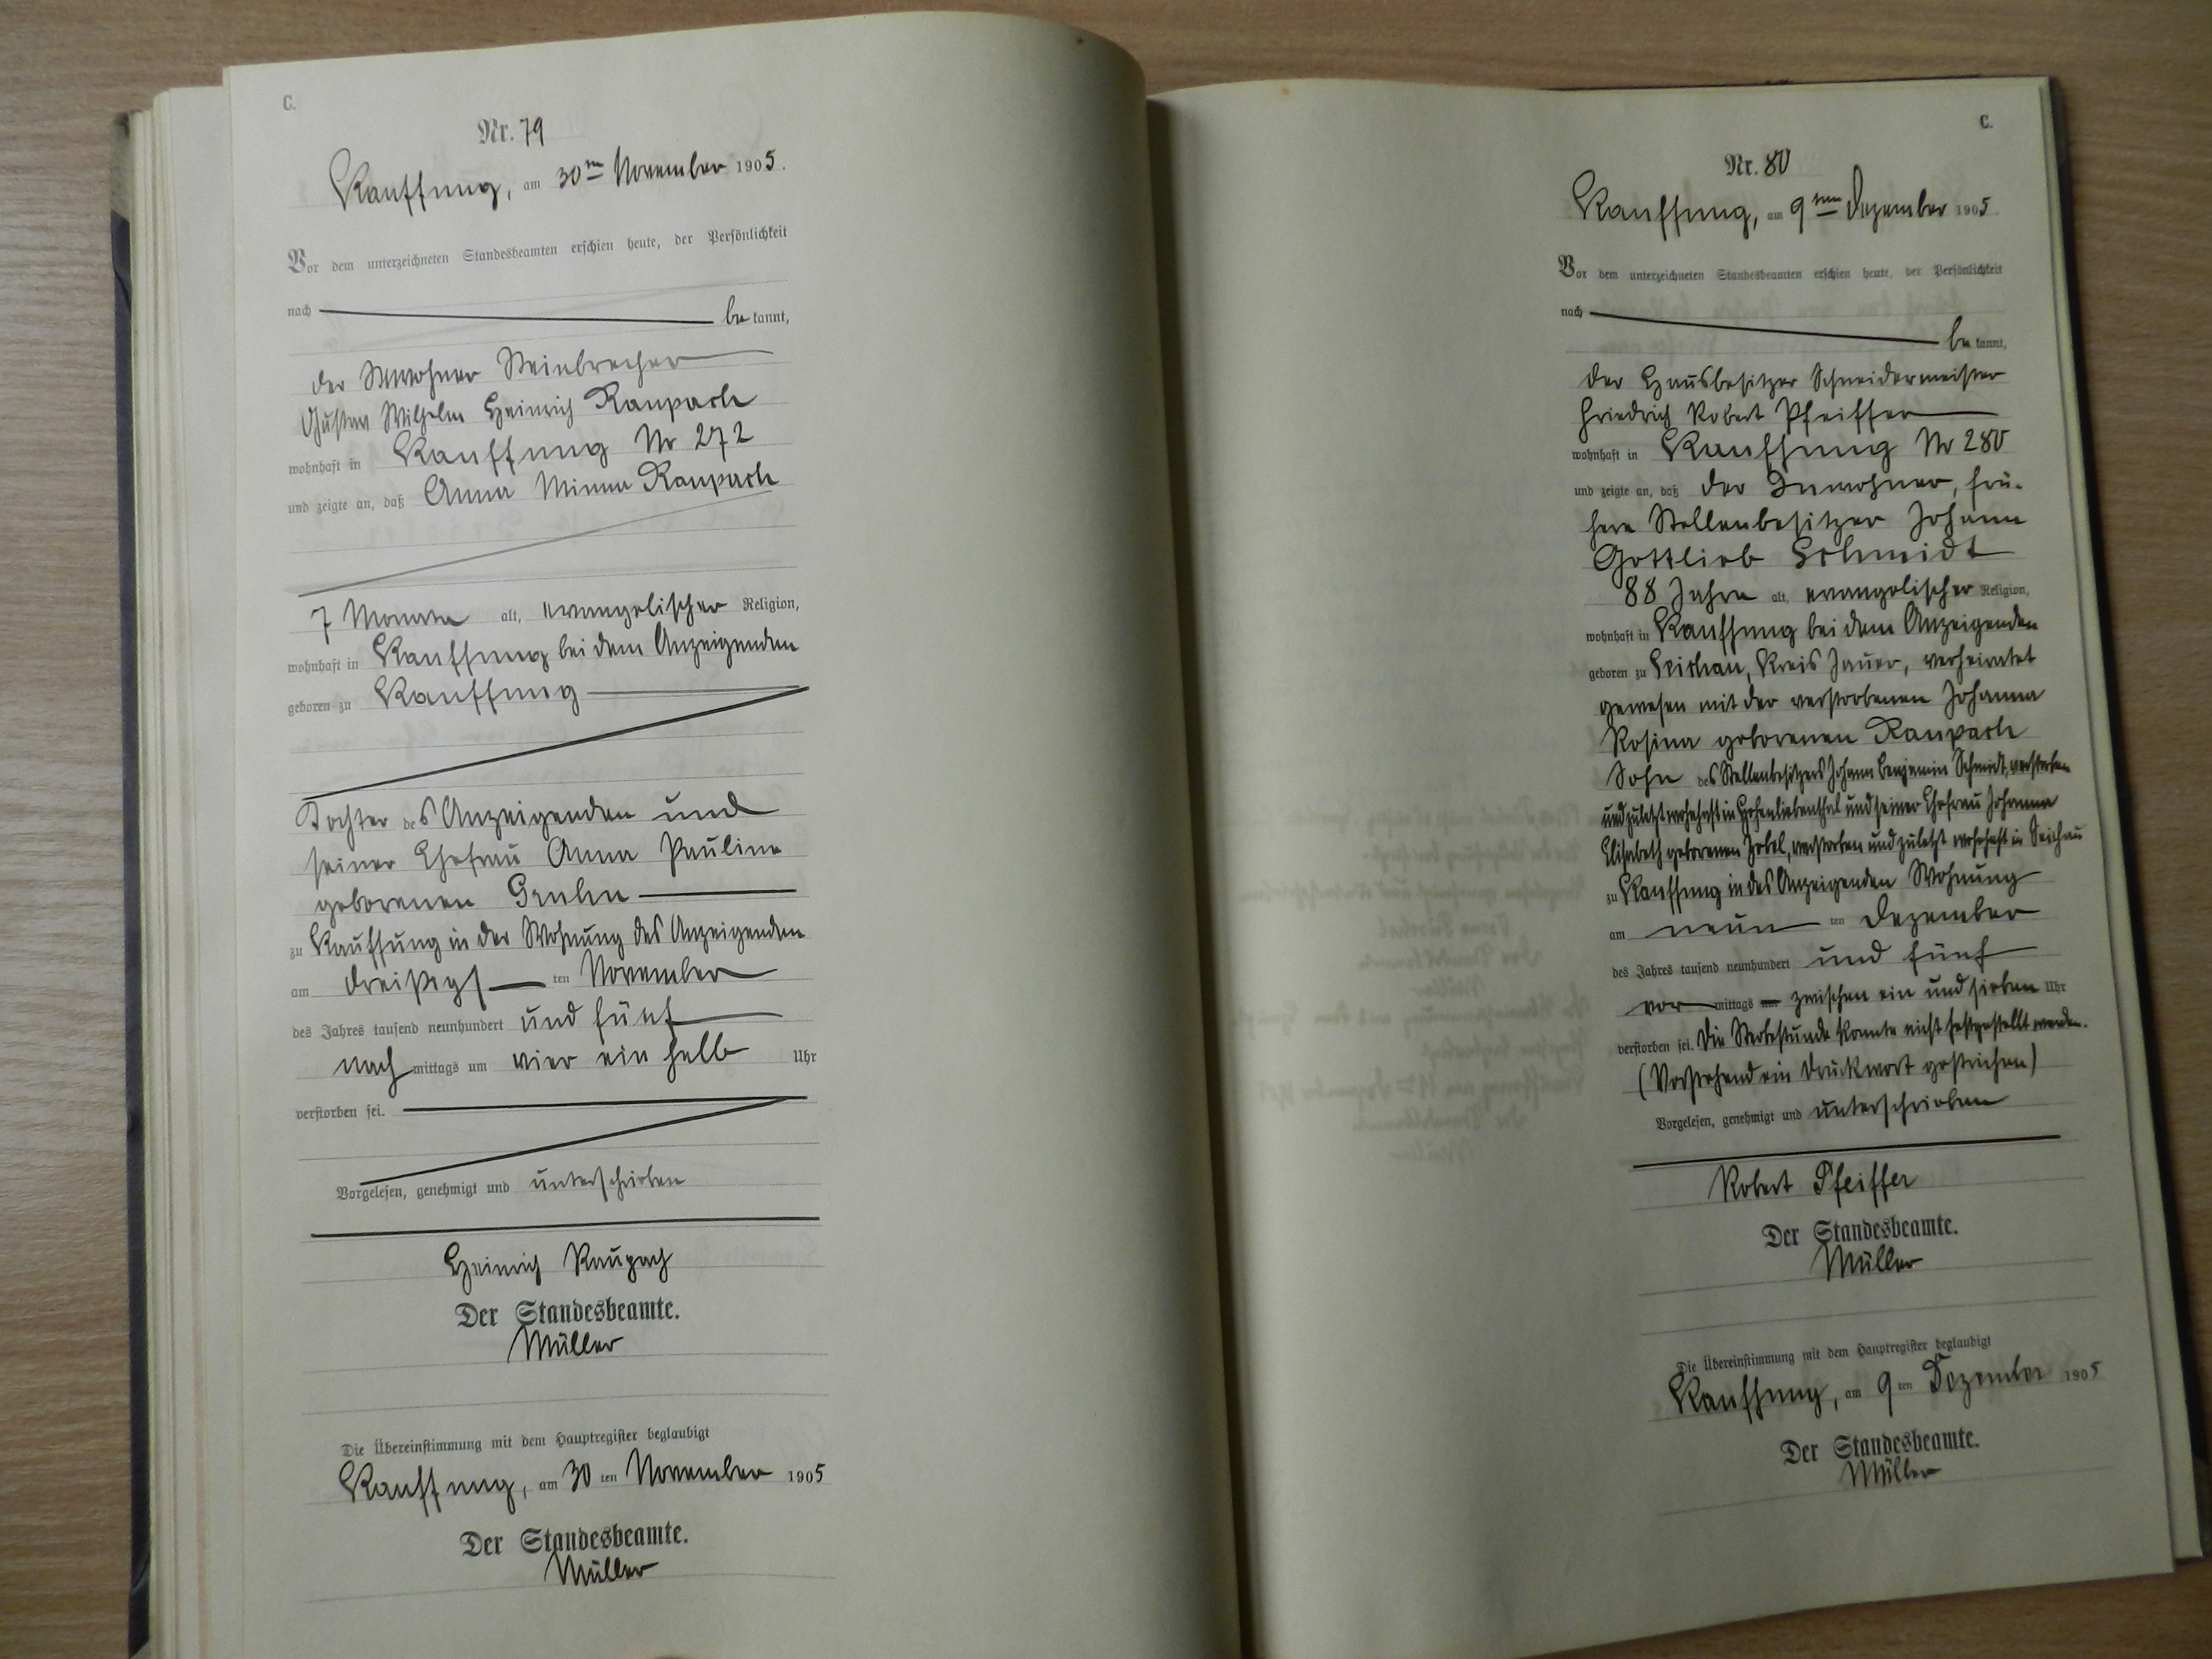 C.
Nr. 79
Kauffung, am 30ten November 1905.
Vor dem unterzeichneten Standesbeamten erschien heute, der Persönlichkeit
nach be kannt,
der Inwohner Steinbrecher
Gustav Wilhelm Heinrich Raupach
wohnhaft in Kauffung Nr 272
und zeigte an, daß Anna Minna Raupach
7 Monate alt, evangelischer Religion,
wohnhaft in Kauffung bei dem Anzeigenden
geboren zu Kauffung
Tochter des Anzeigenden und
seiner Ehefrau Anna Pauline
geborenen Gruhn
zu Kauffung in der Wohnung des Anzeigenden
am dreißigs ten November
des Jahres tausend neunhundert und fünf
nach mittags um vier ein halb Uhr
verstorben sei.
Vorgelesen, genehmigt und unterschrieben
Heinrich Raupach
Der Standesbeamte.
Müller
Die Übereinstimmung mit dem Hauptregister beglaubigt
Kauffung, am 30 ten November 1905
Der Standesbeamte.
Müller
C.
Nr. 80
Kauffung, am 9ten Dezember 1905.
Vor dem unterzeichneten Standesbeamten erschien heute, der Persönlichkeit
nach be kannt,
der Hausbesitzer Schneidermeister
Friedrich Robert Pfeiffer
wohnhaft in Kauffung Nr 280
und zeigte an, daß der Inwohner, frü-
here Stellenbesitzer Johann
Gottlieb Schmidt
88 Jahre alt, evangelischer Religion,
wohnhaft in Kauffung bei dem Anzeigenden
geboren zu Seichau, Kreis Jauer, verheiratet
gewesen mit der verstorbenen Johanna
Rosina geborenen Raupach
Sohn des Stellenbesitzers Johann Benjamin Schmidt, verstorben
und zuletzt wohnhaft in Hohenliebenthal und seiner Ehefrau Johanna
Elisabeth geborenen Zobel, verstorben und zuletzt wohnhaft in Seichau
zu Kauffung in des Anzeigenden Wohnung
am neun ten Dezember
des Jahres tausend neunhundert und fünf
vor mittags um zwischen ein und sieben Uhr
verstorben sei. Die Sterbestunde konnte nicht festgestellt werden.
(Vorstehend ein Druckwort gestrichen)
Vorgelesen, genehmigt und unterschrieben
Robert Pfeiffer
Der Standesbeamte.
Müller
Die Übereinstimmung mit dem Hauptregister beglaubigt
Kauffung, am 9 ten Dezember 1905
Der Standesbeamte.
Müller